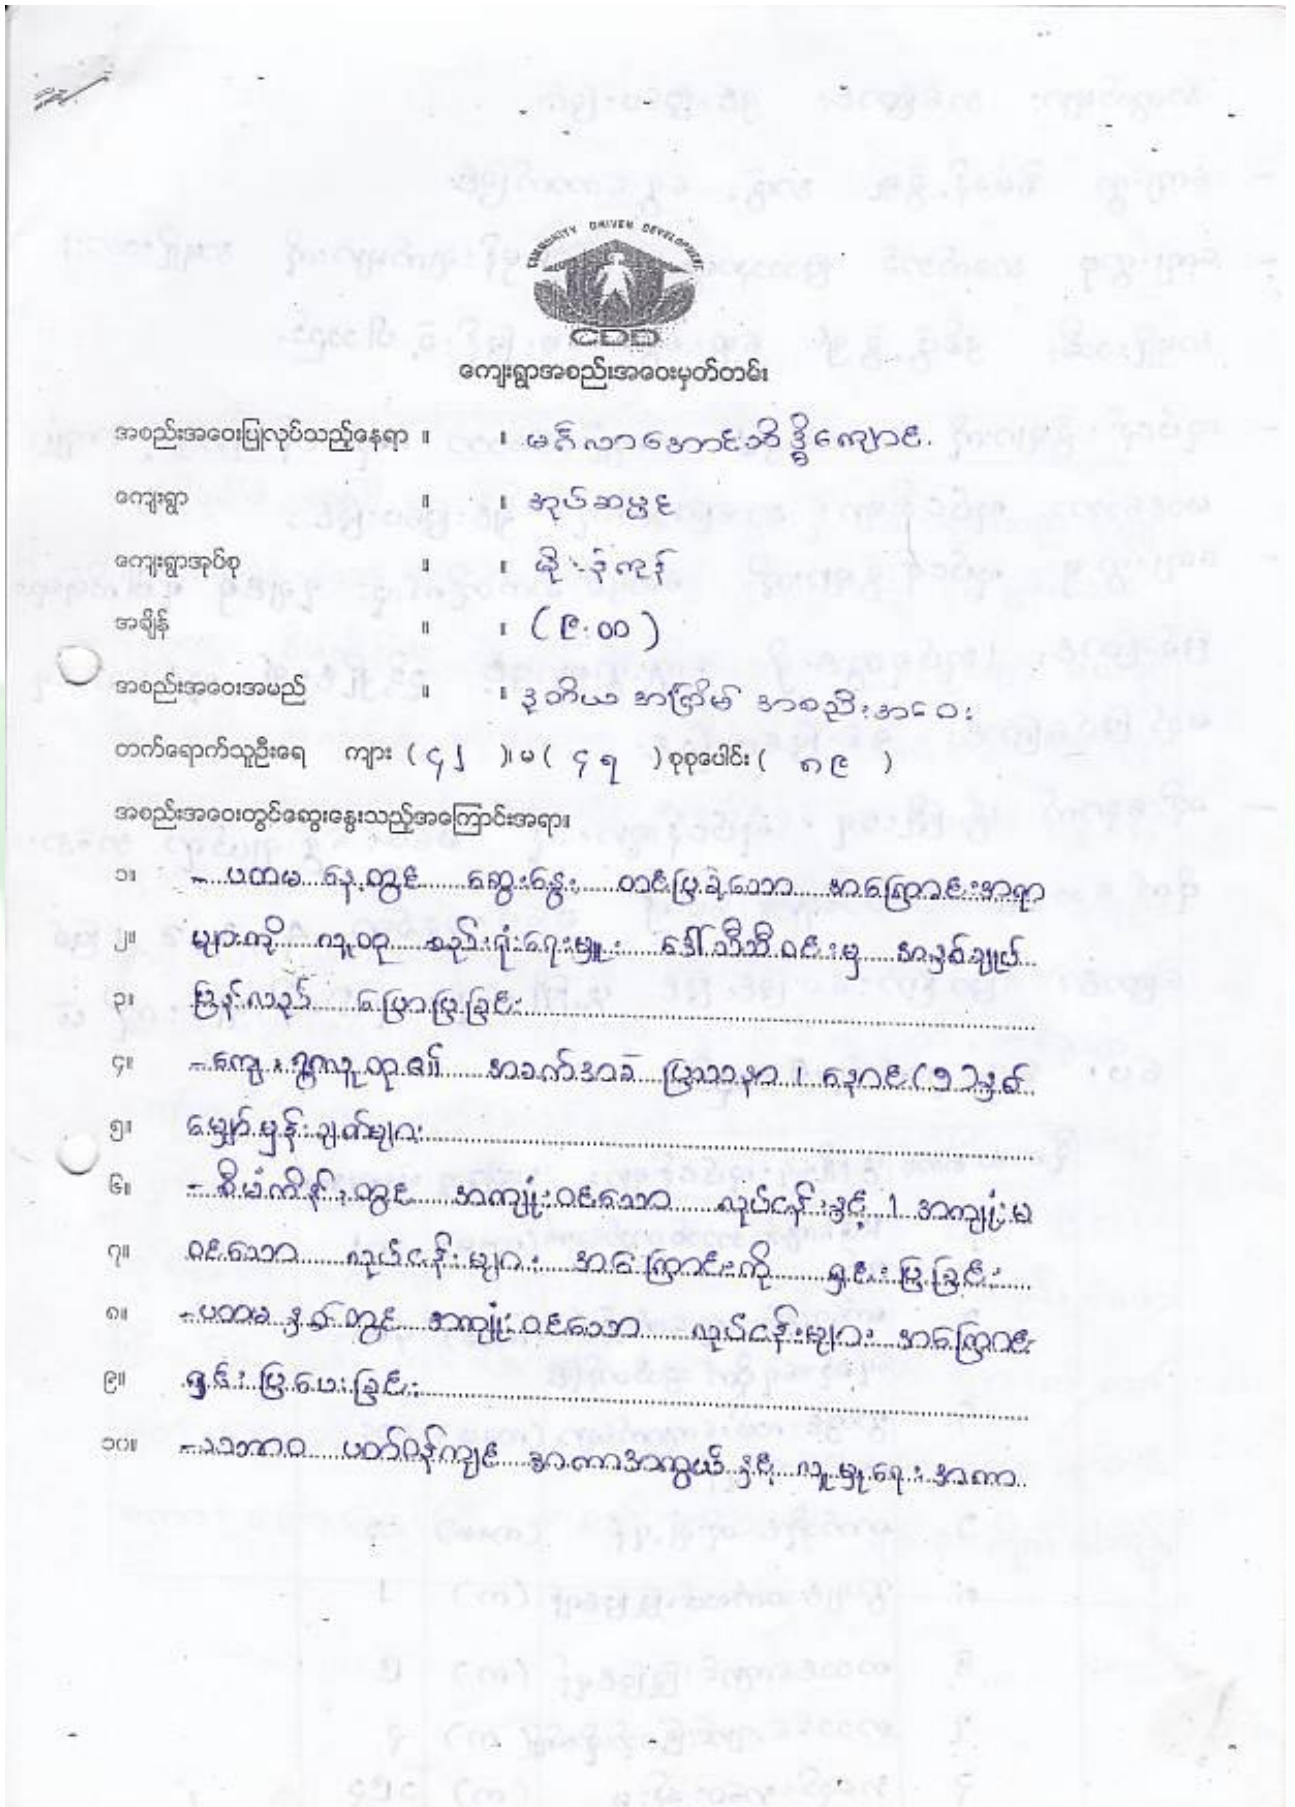 COMMUNITY DRIVEN DEVELOPMENT
CDD
ကျေးရွာအစည်းအဝေးမှတ်တမ်း
အစည်းအဝေးပြုလုပ်သည့်နေရာ ။ ။ မင်္ဂလာအောင်သိဒ္ဓိကျောင်း
ကျေးရွာ ။ ။ အုပ်ဆပ္ပင
ကျေးရွာအုပ်စု ။ ။
အချိန် ။ ။ (၉:၀၀)
အစည်းအဝေးအမည် ။ ။ ဒုတိယ အကြိမ် အစည်းအဝေး
တက်ရောက်သူဦးရေ ကျား (၄၂)၊ မ (၄၇) စုစုပေါင်း (၈၉)
အစည်းအဝေးတွင်ဆွေးနွေးသည့်အကြောင်းအရာ၊
၁။ - ပထမ နေ့တွင် ဆွေးနွေး တင်ပြခဲ့သော အကြောင်းအရာ
၂။ များကို လူထု စည်းရုံးရေးမှူး ဒေါ်သီသီဝင်းမှ အနှစ်ချုပ်
၃။ ပြန်လည် ပြောပြခြင်း
၄။ - ကျေးရွာလူထု၏ အခက်အခဲ ပြဿနာ ၊ နောင်(၅)နှစ်
၅။ မျှော်မှန်းချက်များ
၆။ - စီမံကိန်းတွင် အကျုံးဝင်သော လုပ်ငန်းနှင့် ၊ အကျုံးမ
၇။ ဝင်သော လုပ်ငန်းများ အကြောင်းကို ရှင်းပြခြင်း
၈။ - ပထမနှစ်တွင် အကျုံးဝင်သော လုပ်ငန်းများ အကြောင်း
၉။ ရှင်းပြပေးခြင်း
၁၀။ - သဘာဝ ပတ်ဝန်းကျင် အကာအကွယ်နှင့် လူမှုရေး အကာ